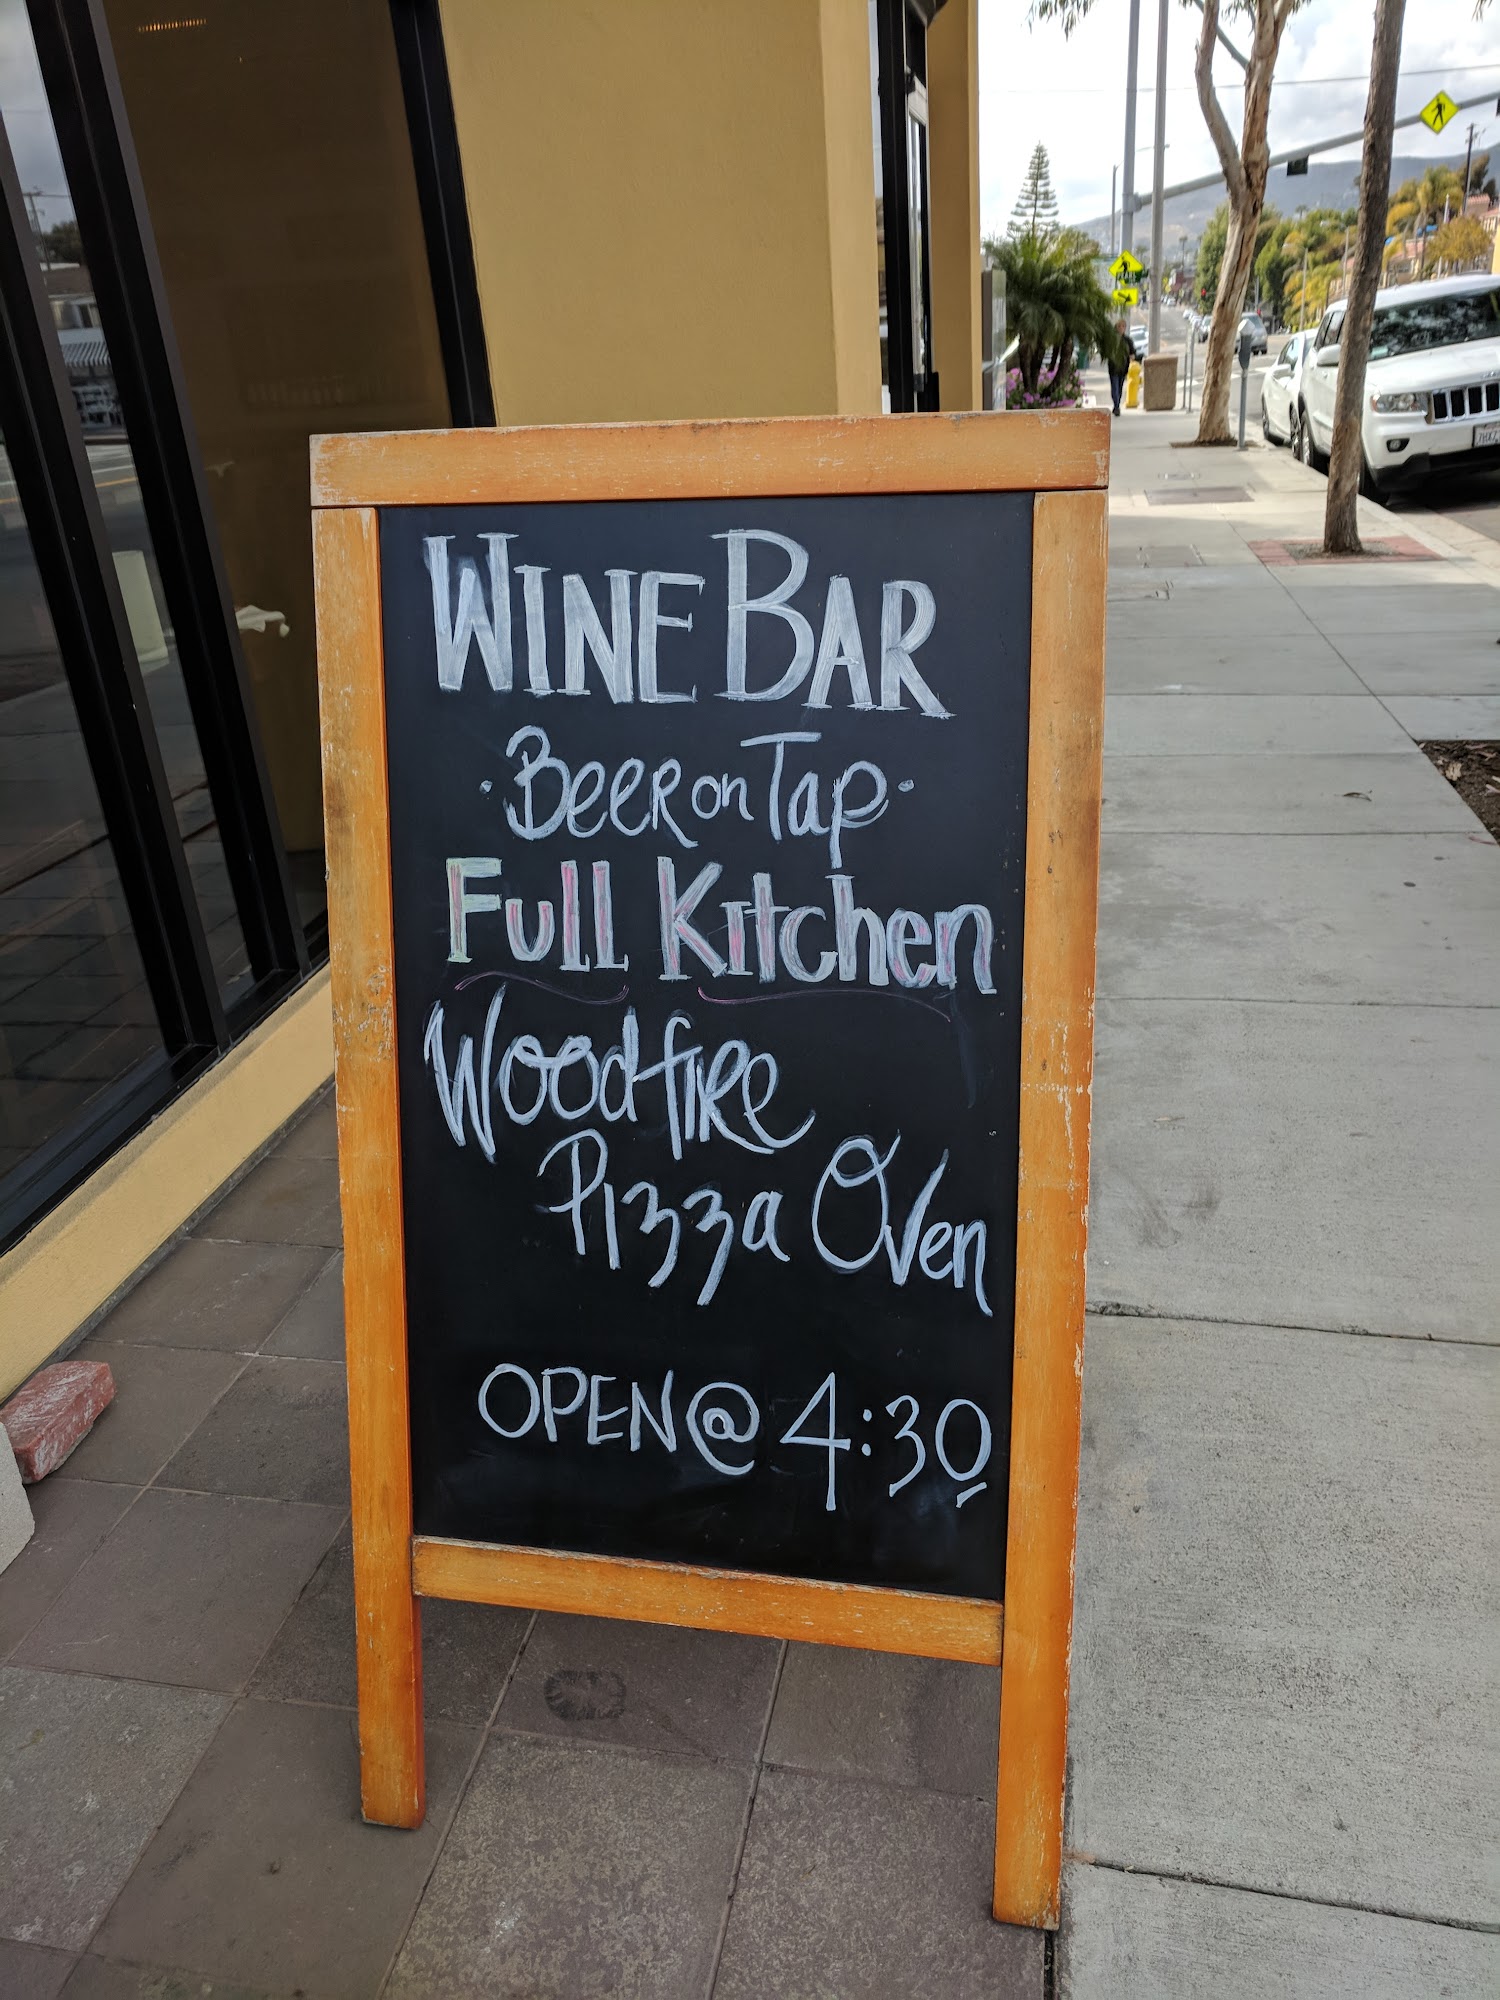 WINE BAR
· Beer on Tap ·
Full Kitchen
Woodfire
Pizza Oven
OPEN @ 4:30